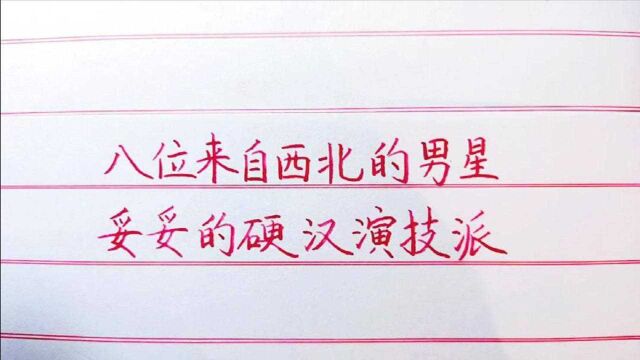 八位来自西北的男星
妥妥的硬汉演技派